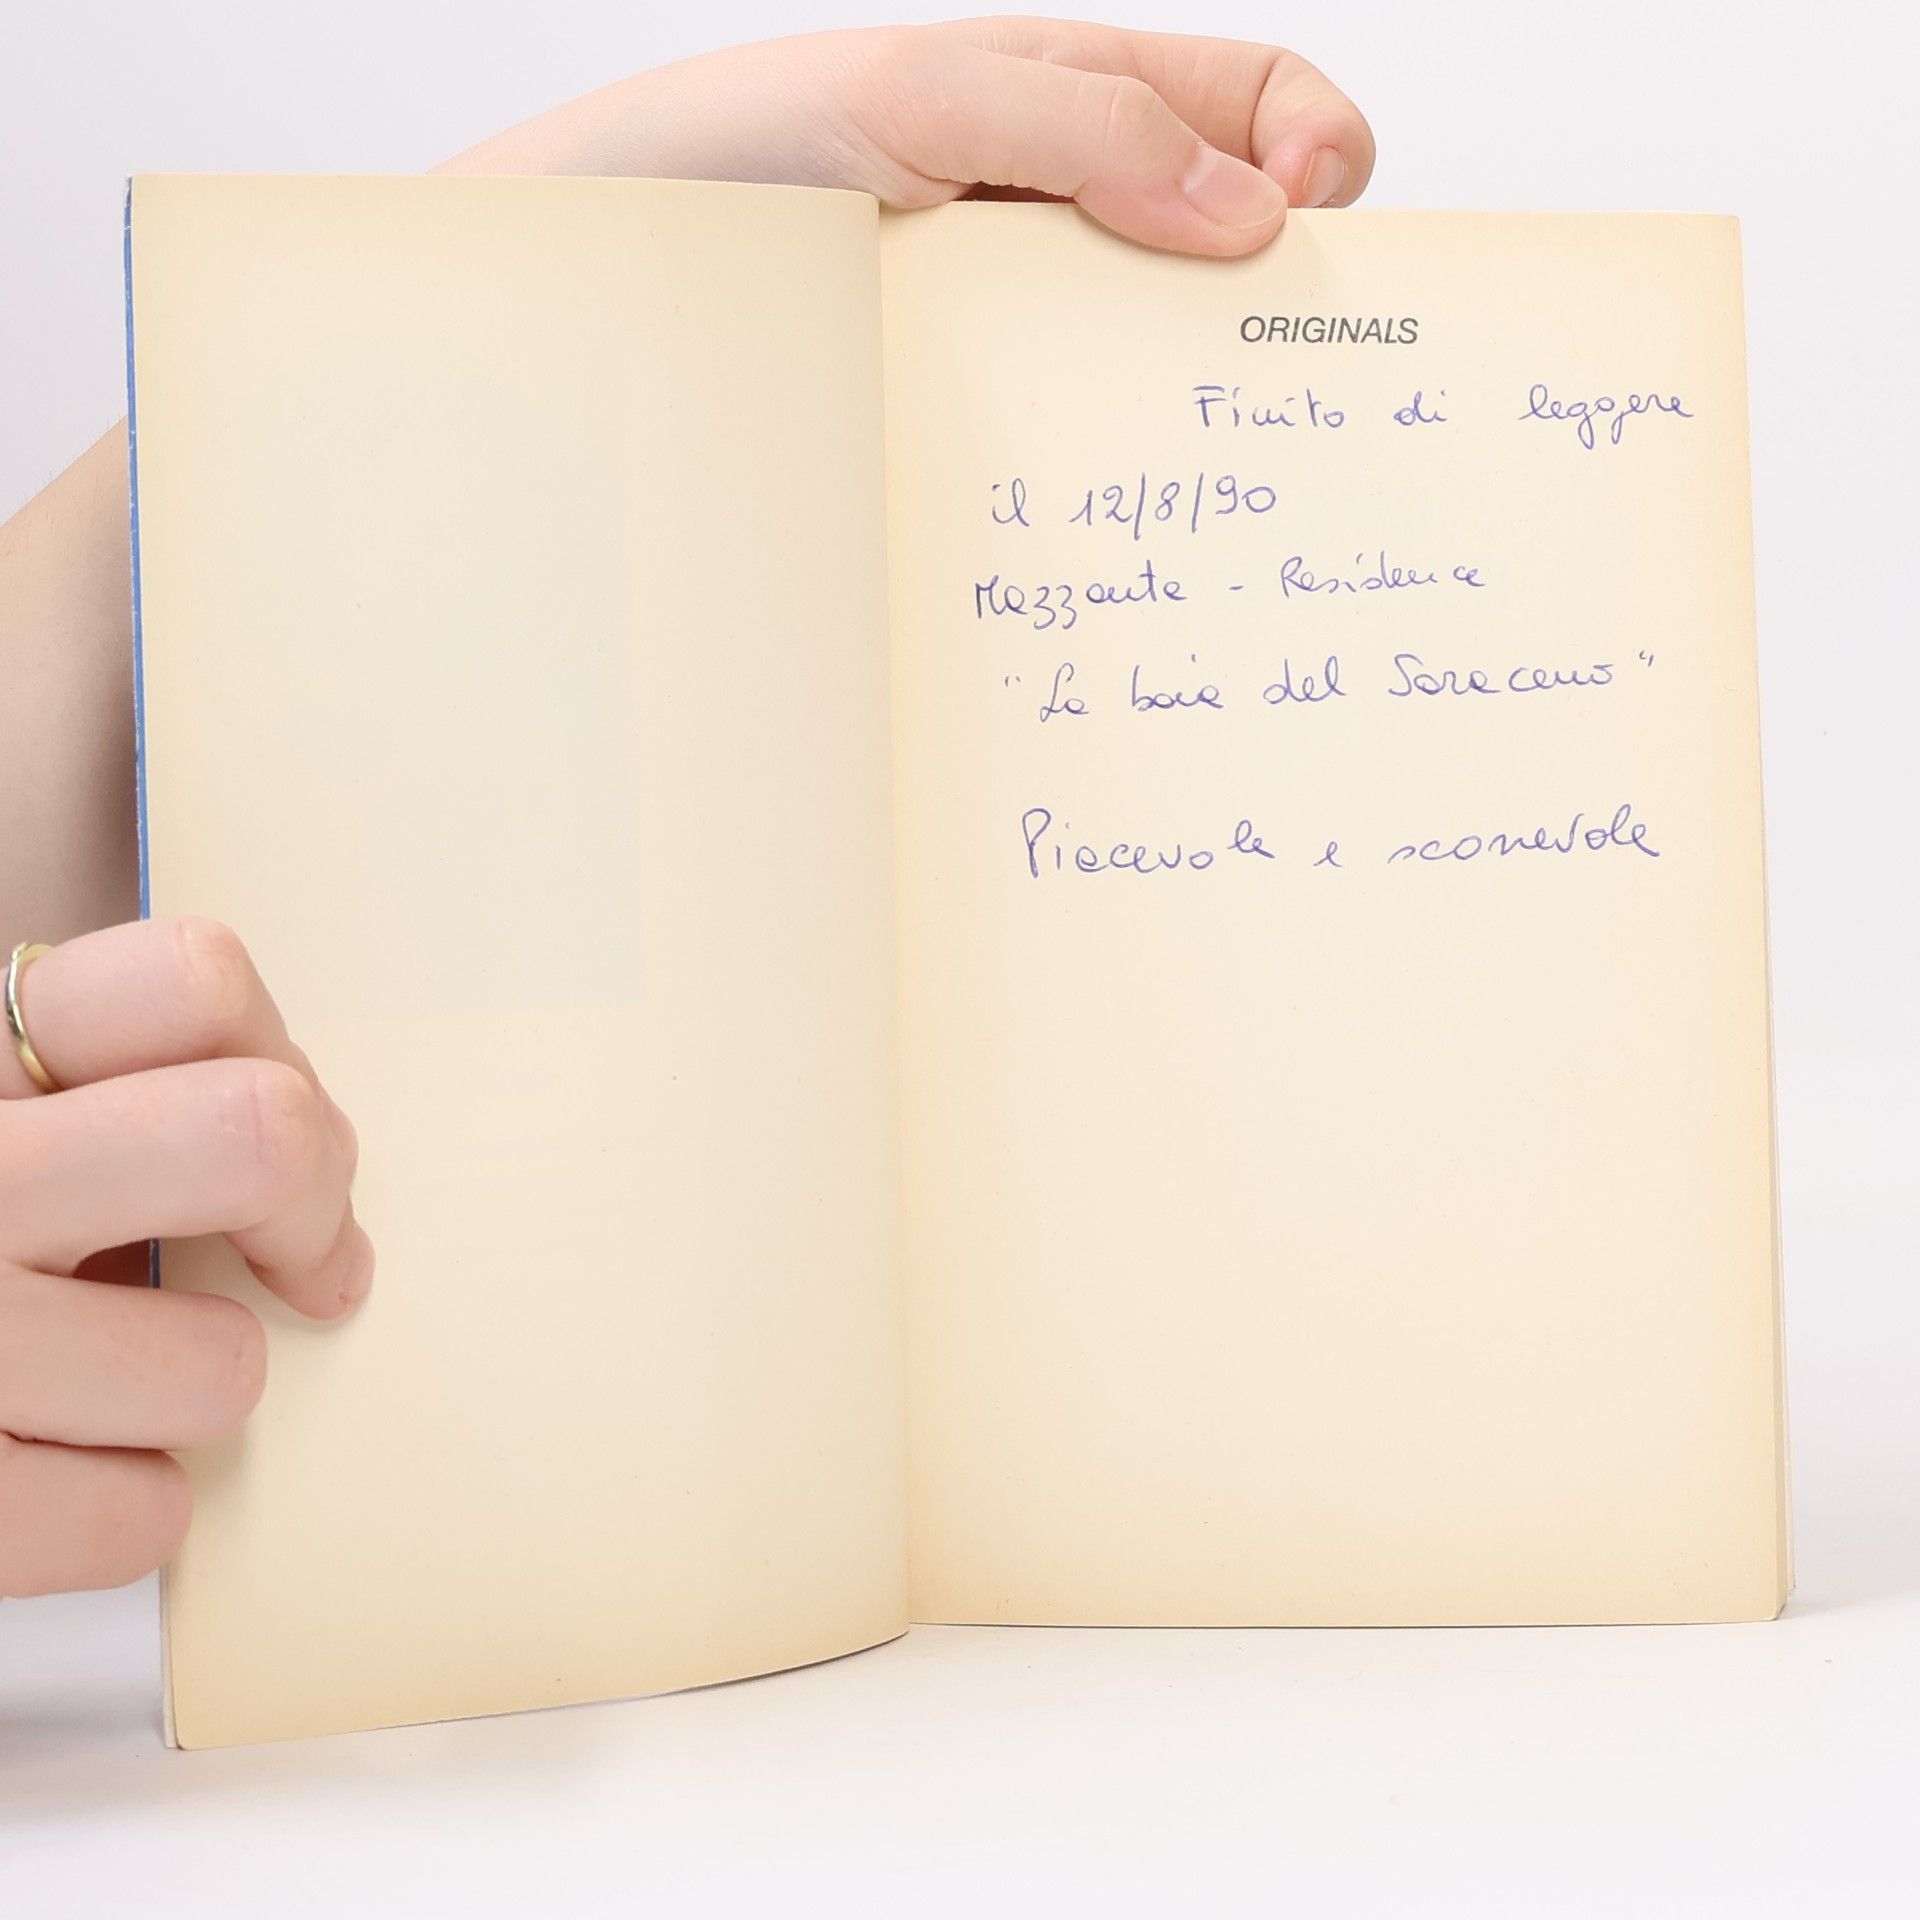 ORIGINALS
Finito di leggere
il 12/8/90
Mezzante - Residence
"La baia del Saraceno"
Piacevole e scorrevole